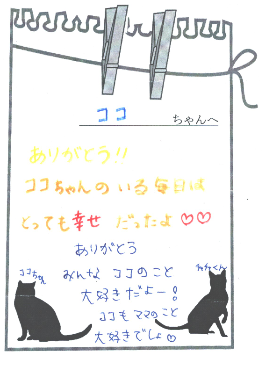 ココ ちゃんへ
ありがとう!!
ココちゃんのいる毎日は
とっても幸せだったよ♡♡
ありがとう
ココちゃん
みんなココのこと
大好きだよー!
ココもママのこと
大好きでしょ♡